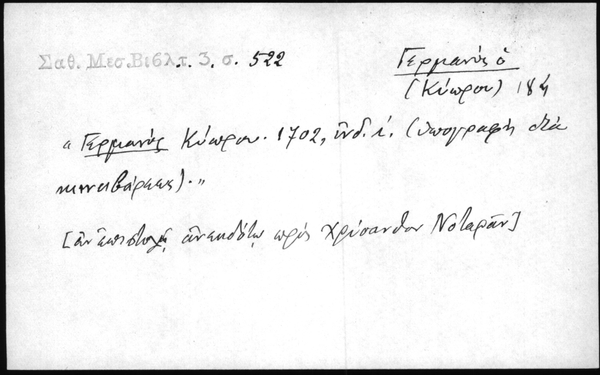 Σαθ. Μεσ. Βιβλ τ. 3, σ. 522
Γερμανός ὁ
(Κύπρου) 184
"Γερμανός Κύπρου. 1702, ἰνδ. ί. (ὑπογραφή διὰ
κινναβάρεως)."
[ἐν ἐπιστολῇ ἀνεκδότῳ πρός Χρύσανθον Νοταρᾶν]